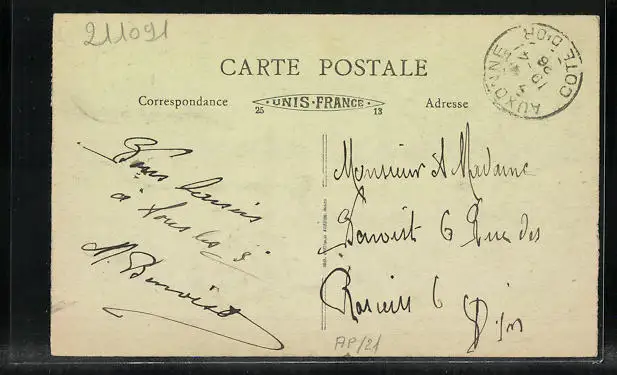 211091
CARTE POSTALE
Correspondance
UNIS-FRANCE
25 13
Adresse
AUXONNE
COTE D'OR
Bons baisers
à tous les 3
M. Benoist
Monsieur et Madame
Benoist 6 Rue des
6
Dijon
AP/21